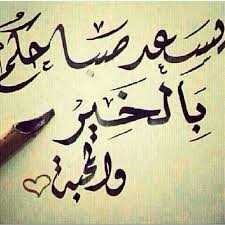 يسعد صباحكم
بِالخَيْرِ
والمحبة